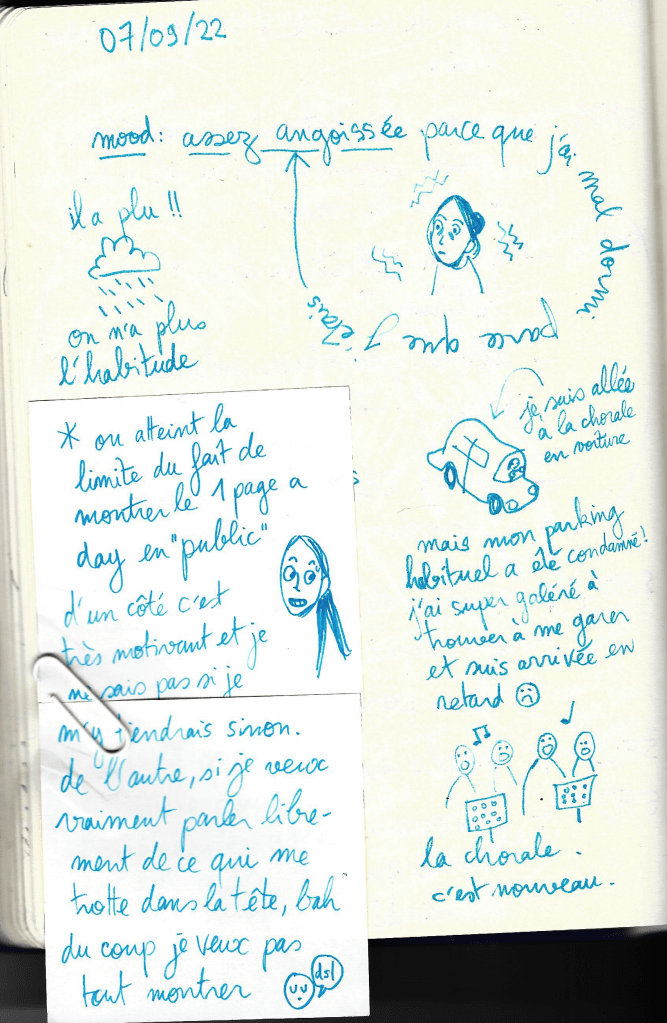 07/09/22
mood: assez angoissée parce que j'ai mal dormi
parce que j'étais
il a plu !!
on n'a plus
l'habitude
* on atteint la
limite du fait de
montrer le 1 page a
day en "public"
d'un côté c'est
très motivant et je
ne sais pas si je
m'y tiendrais sinon.
de l'autre, si je veux
vraiment parler libre-
ment de ce qui me
trotte dans la tête, bah
du coup je veux pas
tout montrer
dsl
je suis allée
à la chorale
en voiture
mais mon parking
habituel a été condamné !
j'ai super galéré à
trouver à me garer
et suis arrivée en
retard
la chorale.
c'est nouveau.